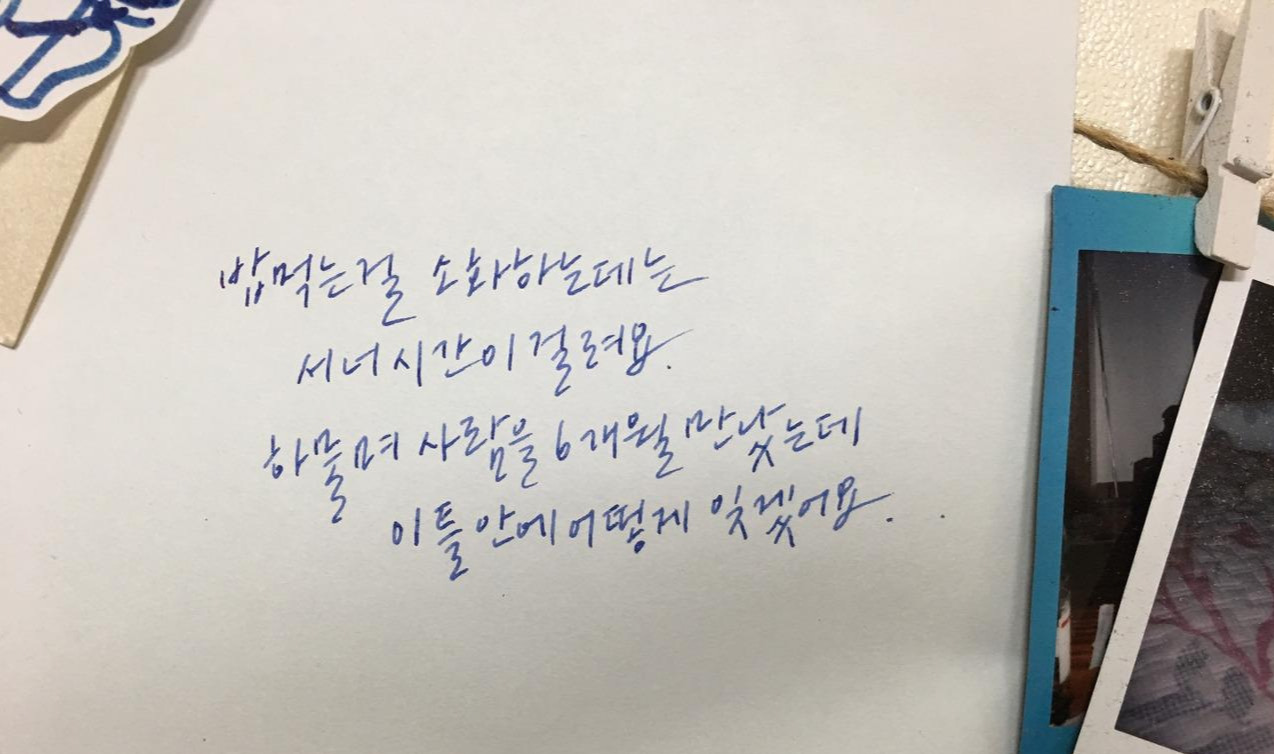 밥먹는걸 소화하는데는
세너시간이 걸려요.
하물며 사람을 6개월 만났는데
이틀안에 어떻게 잊겠어요..